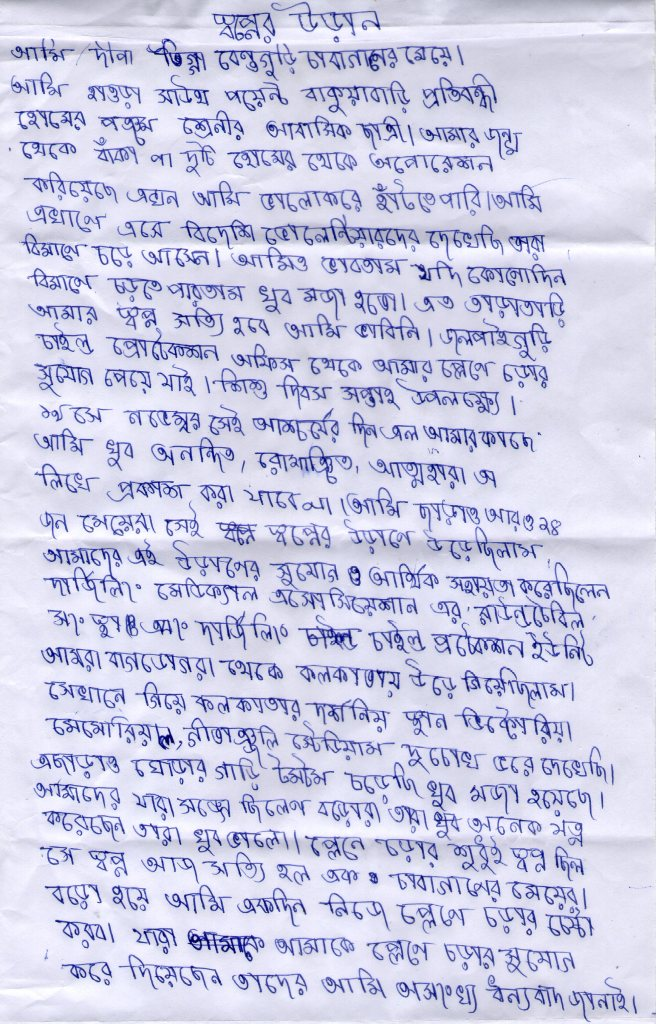 স্বপ্নের উড়ান
আমি দীপা তিগ্গা বেলুগুড়ি চাবাগানের মেয়ে।
আমি হাওড়া সাউথ পয়েন্ট বাকুয়াবাড়ি প্রতিবন্ধী
হোমের পঞ্চম শ্রেনীর আবাসিক ছাত্রী। আমার জন্ম
থেকে বাঁকা পা দুটি হোমের থেকে অপোরেশন
করিয়েছে এখন আমি ভালোকরে হাঁটতে পারি। আমি
এখানে এসে বিদেশি ভোলেন্টিয়ারদের দেখেছি তারা
বিমাণে চড়ে আসেন। আমিও ভাবতাম যদি কোনোদিন
বিমাণে চড়তে পারতাম খুব মজা হতো। এত তাড়াতাড়ি
আমার স্বপ্ন সত্যি হবে আমি ভাবিনি। জলপাইগুড়ি
চাইল্ড প্রোটেকশান অফিস থেকে আমার প্লেণে চড়ার
সুযোগ পেয়ে যাই। শিশু দিবস সপ্তাহ উপলক্ষ্যে।
সে নভেম্বর সেই আশ্চর্যের দিন এল আমার কাছে
আমি খুব আনন্দিত, রোমাঞ্চিত, আত্মহারা তা
লিখে প্রকাশ করা যাবেনা। আমি ছাড়াও আরও ২৪
জন মেয়েরা সেই স্বপ্নের উড়াণে উড়েছিলাম
আমাদের এই উড়াণের সুযোগ ও আর্থিক সহায়তা করেছিলেন
দার্জিলিং মেডিক্যাল এসোসিয়েশান এর রাউন্ডটেবিল
দার্জিলিং চাইল্ড প্রটেকশান ইউনিট
আমরা বাগডোগরা থেকে কলকাতায় উড়ে গিয়েছিলাম।
সেখানে গিয়ে কলকাতার দর্শনিয় স্থান ভিক্টোরিয়া
মেমোরিয়াল, গীতাঞ্জলি স্টেডিয়াম দুচোখ ভরে দেখেছি।
এছাড়াও ঘোড়ার গাড়ি টমটম চড়েছি খুব মজা হয়েছে।
আমাদের যারা সঙ্গে ছিলেণ বড়োরা তারা খুব অনেক যত্ন
করেছেন তারা খুব ভালো। প্লেনে চড়ার শুধুই স্বপ্ন ছিল
সে স্বপ্ন আজ সত্যি হল এক চাবাগানের মেয়ের।
বড়ো হয়ে আমি একদিন নিজে প্লেণে চড়ার চেষ্টা
করব। যারা আমাকে প্লেণে চড়ার সুযোগ
করে দিয়েছেন তাদের আমি অসংখ্য ধন্যবাদ জানাই।